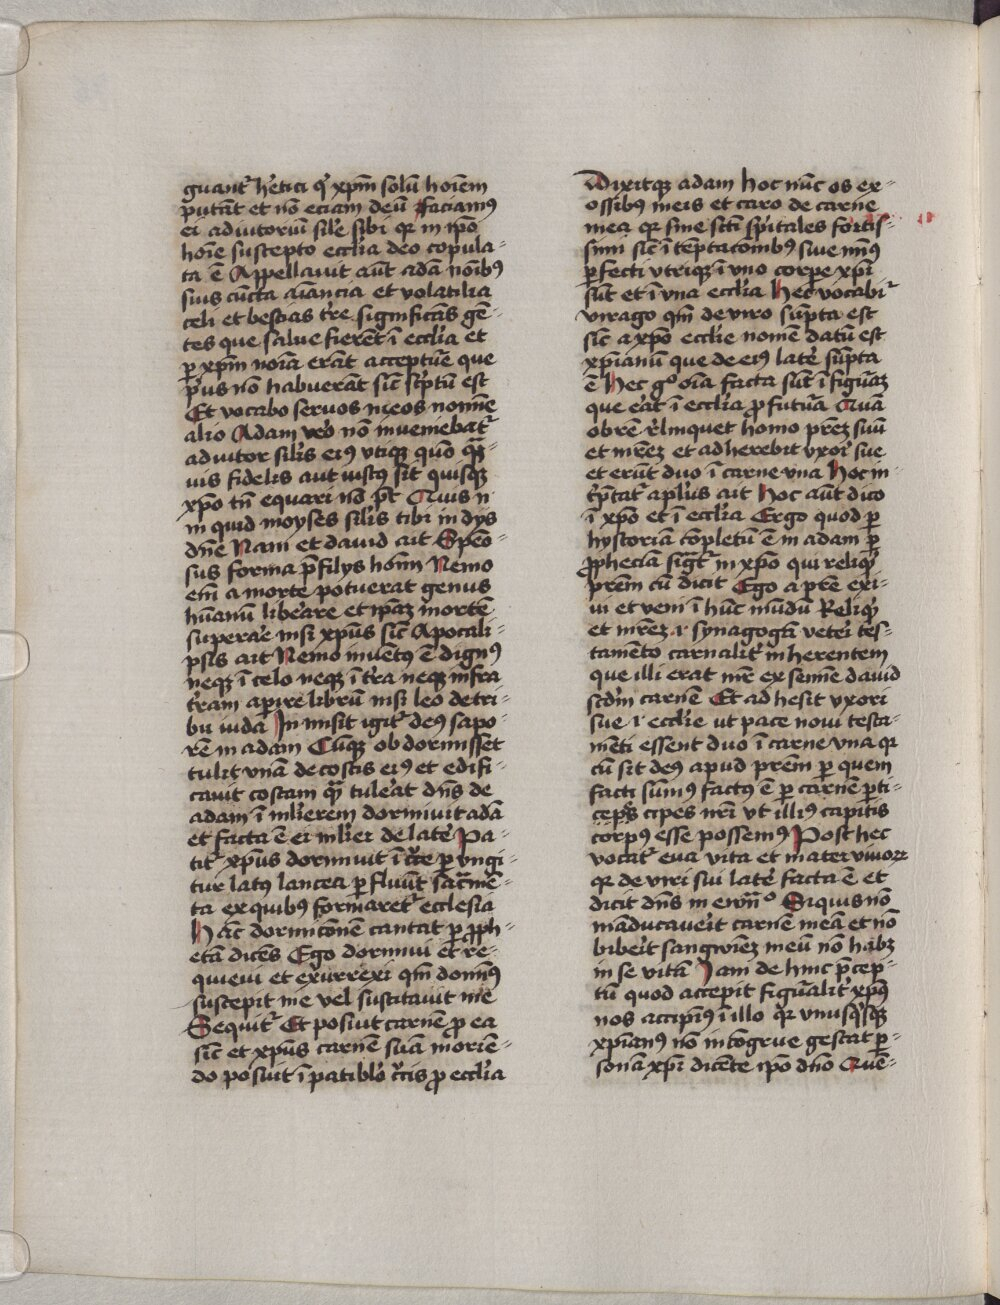 guant᷑ he᷑tici q᷑ xp̅m solu̅ ho̅i̅em
puta̅t et no̅ eciam deu̅ Faciamꝰ
ei adiutoriu̅ si̅le sibi qꝛ in ip̅o
ho̅i̅e suscepto ecc̅lia deo copula⸗
ta e̅ Appellauit au̅t ada̅ no̅i̅bꝰ
suis cu̅cta a̅i̅ancia et volatilia
celi et bestias t᷑re significa̅s ge̅⸗
tes que salue fiere̅t i̅ ecc̅lia et
ꝑ xp̅m no̅i̅a era̅t acceptu̅e que
p᷑us no̅ habuera̅t sic̅ sc᷑ptu̅ est
Et vocabo seruos meos nomi̅e
alio Adam ve᷑o no̅ inueniebat᷑
adiutor sil̅is eiꝰ vtiqꝫ quo̅d qᷓ̅⸗
uis fidelis aut iustꝰ sit quisqꝫ
xp̅o tn̅ equari no̅ p̅t Quis n̅
in quid moyses sil̅is tibi in dijs
dn̅e Nam et dauid ait Speo̅⸗
sus forma p̅ filijs ho̅i̅m Nemo
em̅ a morte potuerat genus
hu̅anu̅ libe᷑are et ip̅aꝫ morte̅
supera᷑e nisi xp̅us sic̅ Apocali⸗
psis ait Nemo inue̅tꝰ e̅ dignꝰ
neqꝫ i̅ celo neqꝫ i̅ t᷑ra neqꝫ infra
t᷑ram aperire libru̅ nisi leo de tri⸗
bu iuda In misit igit᷑ deꝰ sopo⸗
re̅ in adam Cu̅qꝫ obdormisset
tulit vna̅ de costis eiꝰ et edifi⸗
cauit costam qᷓ̅ tule᷑at dn̅s de
adam i̅ m̅lierem dormiuit ada̅
et facta e̅ ei m̅lier de late᷑ Pa⸗
tit᷑ xp̅us dormiuit i̅ c᷑ce ꝑ vngi⸗
tur latꝰ lancea ꝑ fluu̅t sac᷑me̅⸗
ta ex quibꝰ formaret᷑ ecclesia
Ha̅c dormico̅ne̅ cantat ꝑ ꝓph⸗
eta̅ dice̅s Ego dormiui et re⸗
quieui et exurrexi qm̅ domi̅ꝰ
suscepit me vel suscitauit me
Sequit᷑ Et posiut carne̅ ꝓ ea
sic̅ et xp̅us carne̅ sua̅ morie̅⸗
do posuit i̅ patiblo᷑ c᷑cis ꝓ ecc̅lia
Dixitqꝫ adam hoc nu̅c os ex⸗
ossibꝰ meis et caro de carne
mea qꝛ sine sc̅ti sp̅i̅tales fortis⸗
simi sic̅ i̅ te̅ptaco̅ibꝰ siue mi̅ꝰ
ꝑfecti vtriqꝫ i̅ vno corpe xp̅i
su̅t et i̅ vna ecc̅lia Hec vocabi᷑
virago qm̅ de viro su̅pta est
sic̅ a xp̅o ecc̅lie nome̅ datu̅ est
xp̅ianu̅ que de eiꝰ late᷑ su̅pta
e̅ Hec g° o̅i̅a facta su̅t i̅ figu᷑aꝫ
que e᷑at i̅ ecc̅lia ꝓ futu᷑a Qua̅
obre̅ re᷑linquet homo pr̅eꝫ suu̅
et mr̅eꝫ et adherebit vxor᷑ sue
et eru̅t duo i̅ carne vna Hoc in⸗
t᷑p̅tat᷑ aplu̅s ait Hoc au̅t dico
i̅ xp̅o et i̅ ecc̅lia Ergo quod ꝑ
hystoria co̅pletu̅ e̅ in adam ꝑ
ꝓphecia̅ sig̅t᷑ in xp̅o qui reliqͥt
pr̅em cu̅ dicit Ego a pr̅e exi⸗
ui et veni i̅ hu̅c mu̅du̅ Reliqͥt
et mr̅eꝫ .i. synagoga̅ vete᷑i tes⸗
tame̅to carnalit᷑ inherentem
que illi erat mr̅e ex semi̅e dauid
sc̅dm carne̅ Et adhesit vxori
sue .i. ecc̅lie ut pace noui testa⸗
me̅ti essent duo i̅ carne vna qꝛ
cu̅ sit deꝰ apud pr̅em ꝑ quem
facti sumꝰ factꝰ e̅ ꝑ carne̅ ꝑti⸗
ceps̅ c̅pes nr̅i vt illiꝰ capitis
corpꝰ esse possemꝰ Post hec
vocat᷑ eua vita et mater viuoꝝ
qꝛ de viri sui late᷑ facta e̅ et
dicit dn̅s in ewn̅° Siquis no̅
ma̅ducaue᷑it carne̅ mea̅ et no̅
bibe᷑it sangwine̅ꝫ meu̅ no̅ habꝫ
in se vita̅ Iam de hinc p̅cep⸗
tu̅ quod accepit figu᷑alit᷑ xp̅ꝰ
nos accipimꝰ i̅ illo qꝛ vnusqͥsqꝫ
xp̅ianꝰ no̅ inco̅grue gestat ꝑ⸗
sona̅ xp̅i dice̅te ip̅o dn̅o Que̅⸗